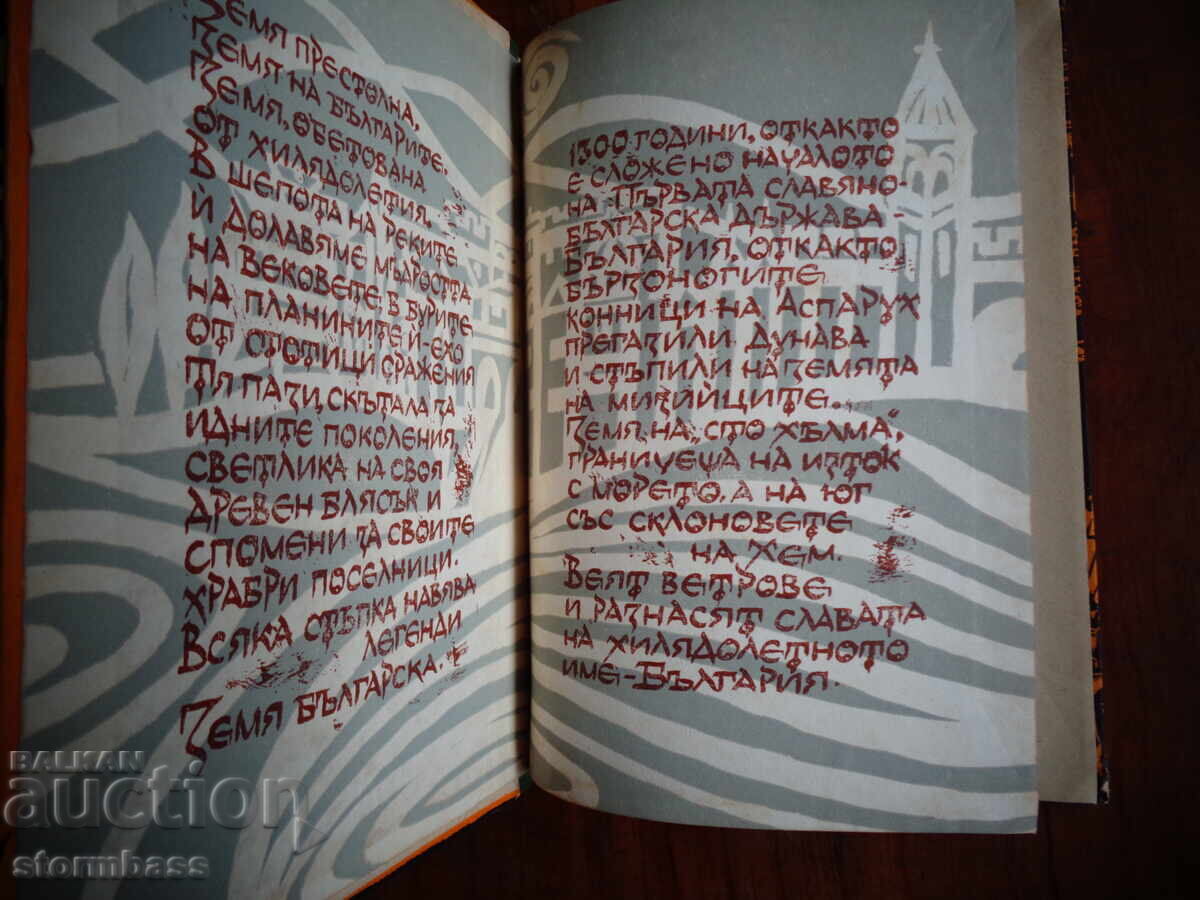 Земя престолна,
Земя на българите.
Земя, обетована
от хилядолетия.
В шепота на реките
ѝ долавяме мъдростта
на вековете, в бурите
на планините ѝ-ехо
от стотици сражения
Тя пази, скътала за
идните поколения,
светлика на своя
древен блясък и
спомени за своите
храбри поселници.
Всяка стъпка навява
легенди
Земя българска.
1300 години, откакто
е сложено началото
на Първата славяно-
българска държава-
България, откакто
бързоногите
конници на Аспарух
прегазили Дунава
и стъпили на земята
на мизийците.
Земя на „сто хълма",
граничеща на изток
с морето, а на юг
със склоновете
на Хем.
Веят ветрове
и разнасят славата
на хилядолетното
име-България.
BALKAN
auction
stormbass